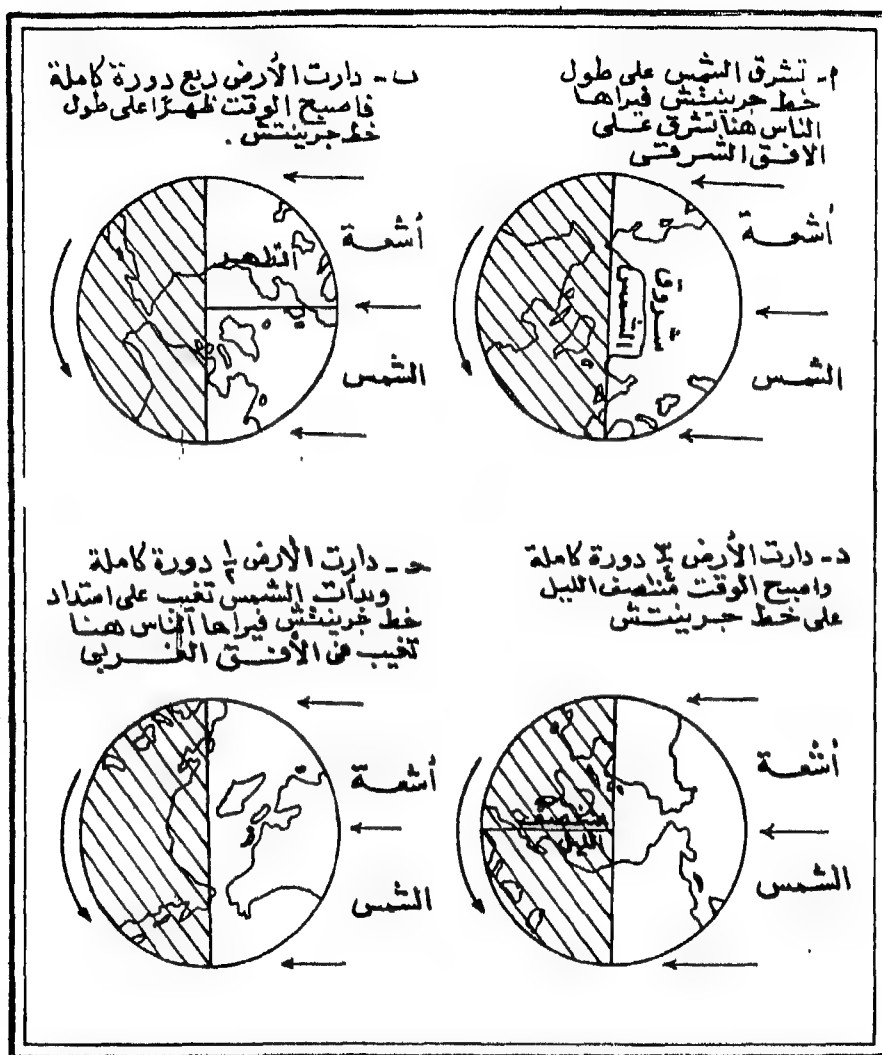 أ- تشرق الشمس على طول
خط جرينتش فيراها
الناس هنا تشرق على
الافق الشرقى
أشعة
الشمس
شروق
الشمس
ب- دارت الأرض ربع دورة كاملة
فاصبح الوقت ظهرًا على طول
خط جرينتش .
أشعة
الشمس
الظهر
حـ- دارت الأرض ½ دورة كاملة
وبدأت الشمس تغيب على امتداد
خط جرينتش فيراها الناس هنا
تغيب عن الأفق الغربى
أشعة
الشمس
د- دارت الأرض ¾ دورة كاملة
واصبح الوقت منتصف الليل
على خط جرينتش
أشعة
الشمس
منتصف
الليل